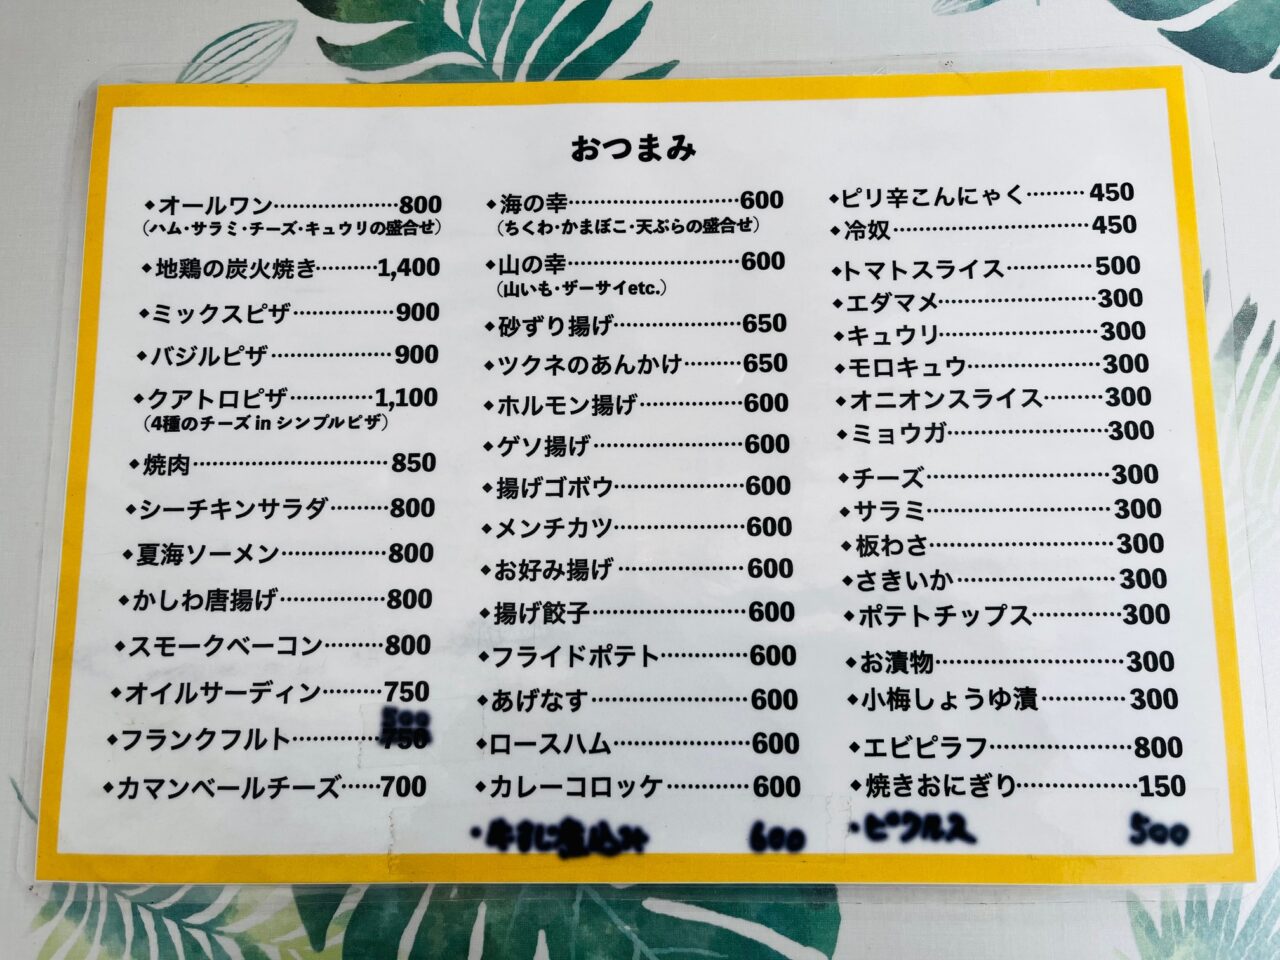 おつまみ
◆オールワン…………………800
（ハム・サラミ・チーズ・キュウリの盛合せ）
◆地鶏の炭火焼き………1,400
◆ミックスピザ………………900
◆バジルピザ…………………900
◆クアトロピザ……………1,100
（4種のチーズ in シンプルピザ）
◆焼肉……………………………850
◆シーチキンサラダ………800
◆夏海ソーメン………………800
◆かしわ唐揚げ………………800
◆スモークベーコン………800
◆オイルサーディン………750
500
◆フランクフルト……………750
◆カマンベールチーズ……700
◆海の幸…………………………600
（ちくわ・かまぼこ・天ぷらの盛合せ）
◆山の幸…………………………600
（山いも・ザーサイetc.）
◆砂ずり揚げ…………………650
◆ツクネのあんかけ………650
◆ホルモン揚げ………………600
◆ゲソ揚げ……………………600
◆揚げゴボウ…………………600
◆メンチカツ…………………600
◆お好み揚げ…………………600
◆揚げ餃子……………………600
◆フライドポテト……………600
◆あげなす……………………600
◆ロースハム…………………600
◆カレーコロッケ……………600
・牛すじ煮込み 600
◆ピリ辛こんにゃく………450
◆冷奴……………………………450
◆トマトスライス……………500
◆エダマメ……………………300
◆キュウリ……………………300
◆モロキュウ…………………300
◆オニオンスライス………300
◆ミョウガ……………………300
◆チーズ………………………300
◆サラミ………………………300
◆板わさ………………………300
◆さきいか……………………300
◆ポテトチップス……………300
◆お漬物………………………300
◆小梅しょうゆ漬……………300
◆エビピラフ…………………800
◆焼きおにぎり………………150
・ピクルス 500